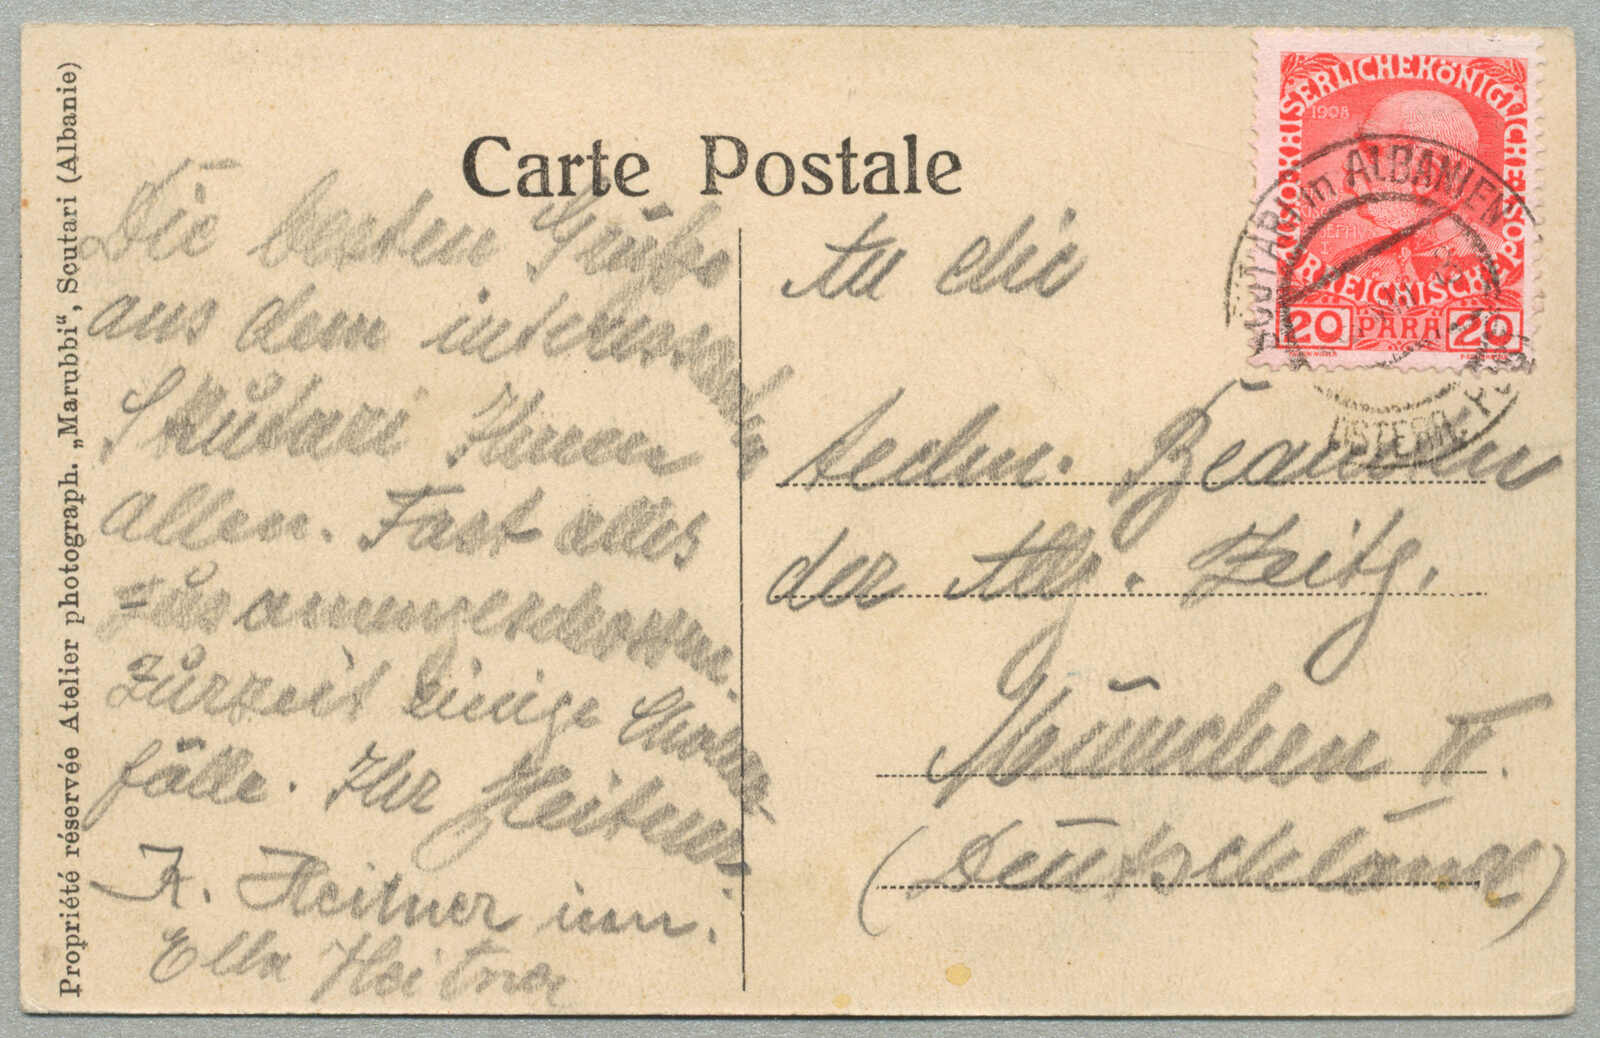 Carte Postale
Propriété réservée Atelier photograph. „Marubbi“, Scutari (Albanie)
Die besten Grüße
aus dem interessanten
Skūtari Ihnen
allen. Fast alles
zūsammengeschossen.
Zūrzeit einige Cholera-
fälle. Ihr
K. Heitner
Ella Heitner
An die
techn. Beamten
der Allg. Zeitg.
München II.
(Deūtschland)
KAISERLICHEKÖNIGLICHE
ÖSTERREICHISCHE POST
1908
20 PARA 20
SCUTARI in ALBANIEN
ÖSTERR. POST